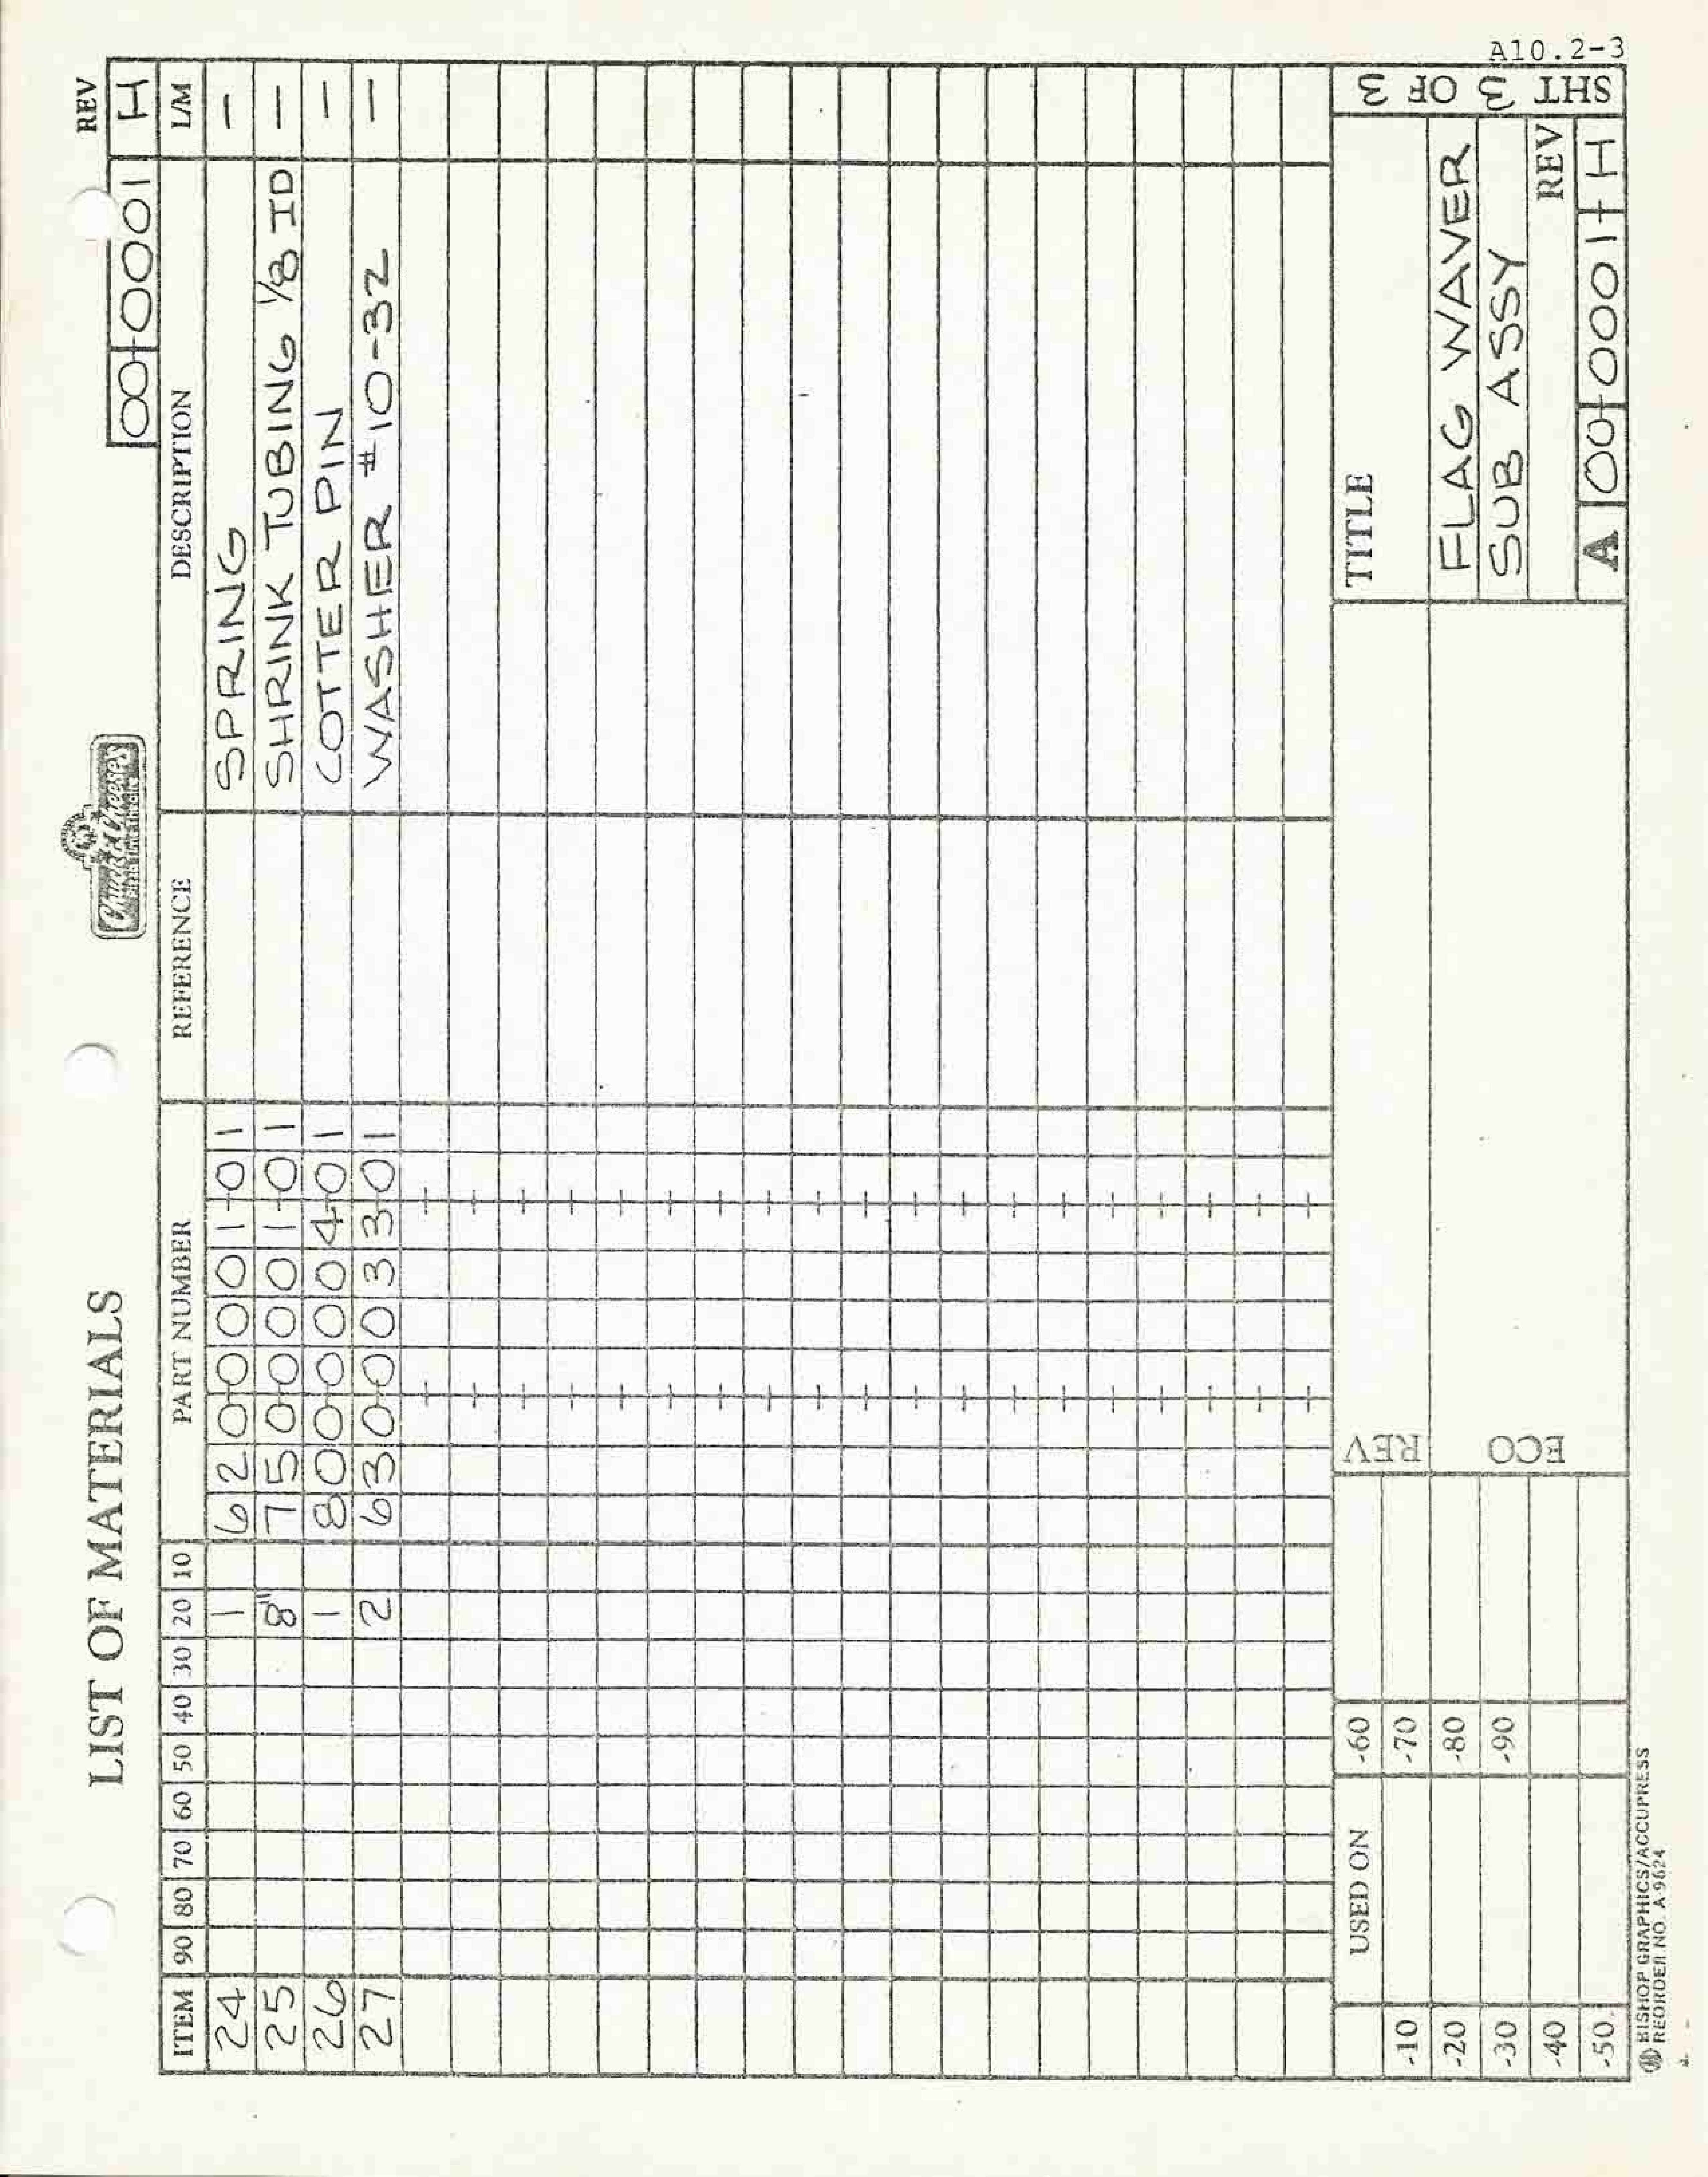 A10.2-3
LIST OF MATERIALS
Chuck E. Cheese's
PIZZA TIME THEATRE
REV
00-0001 H
ITEM 90 80 70 60 50 40 30 20 10 PART NUMBER REFERENCE DESCRIPTION L/M
24 1 620-0001-01 SPRING –
25 8" 750-0001-01 SHRINK TUBING 1/8 ID –
26 1 800-0004-01 COTTER PIN –
27 2 630-0033-01 WASHER #10-32 –
USED ON -60 REV TITLE
-10 -70
-20 -80 FLAG WAVER
-30 -90 ECO SUB ASSY
-40 REV
-50 A 00-0001-H
SHT 3 OF 3
BISHOP GRAPHICS/ACCUPRESS
REORDER NO. A-9624